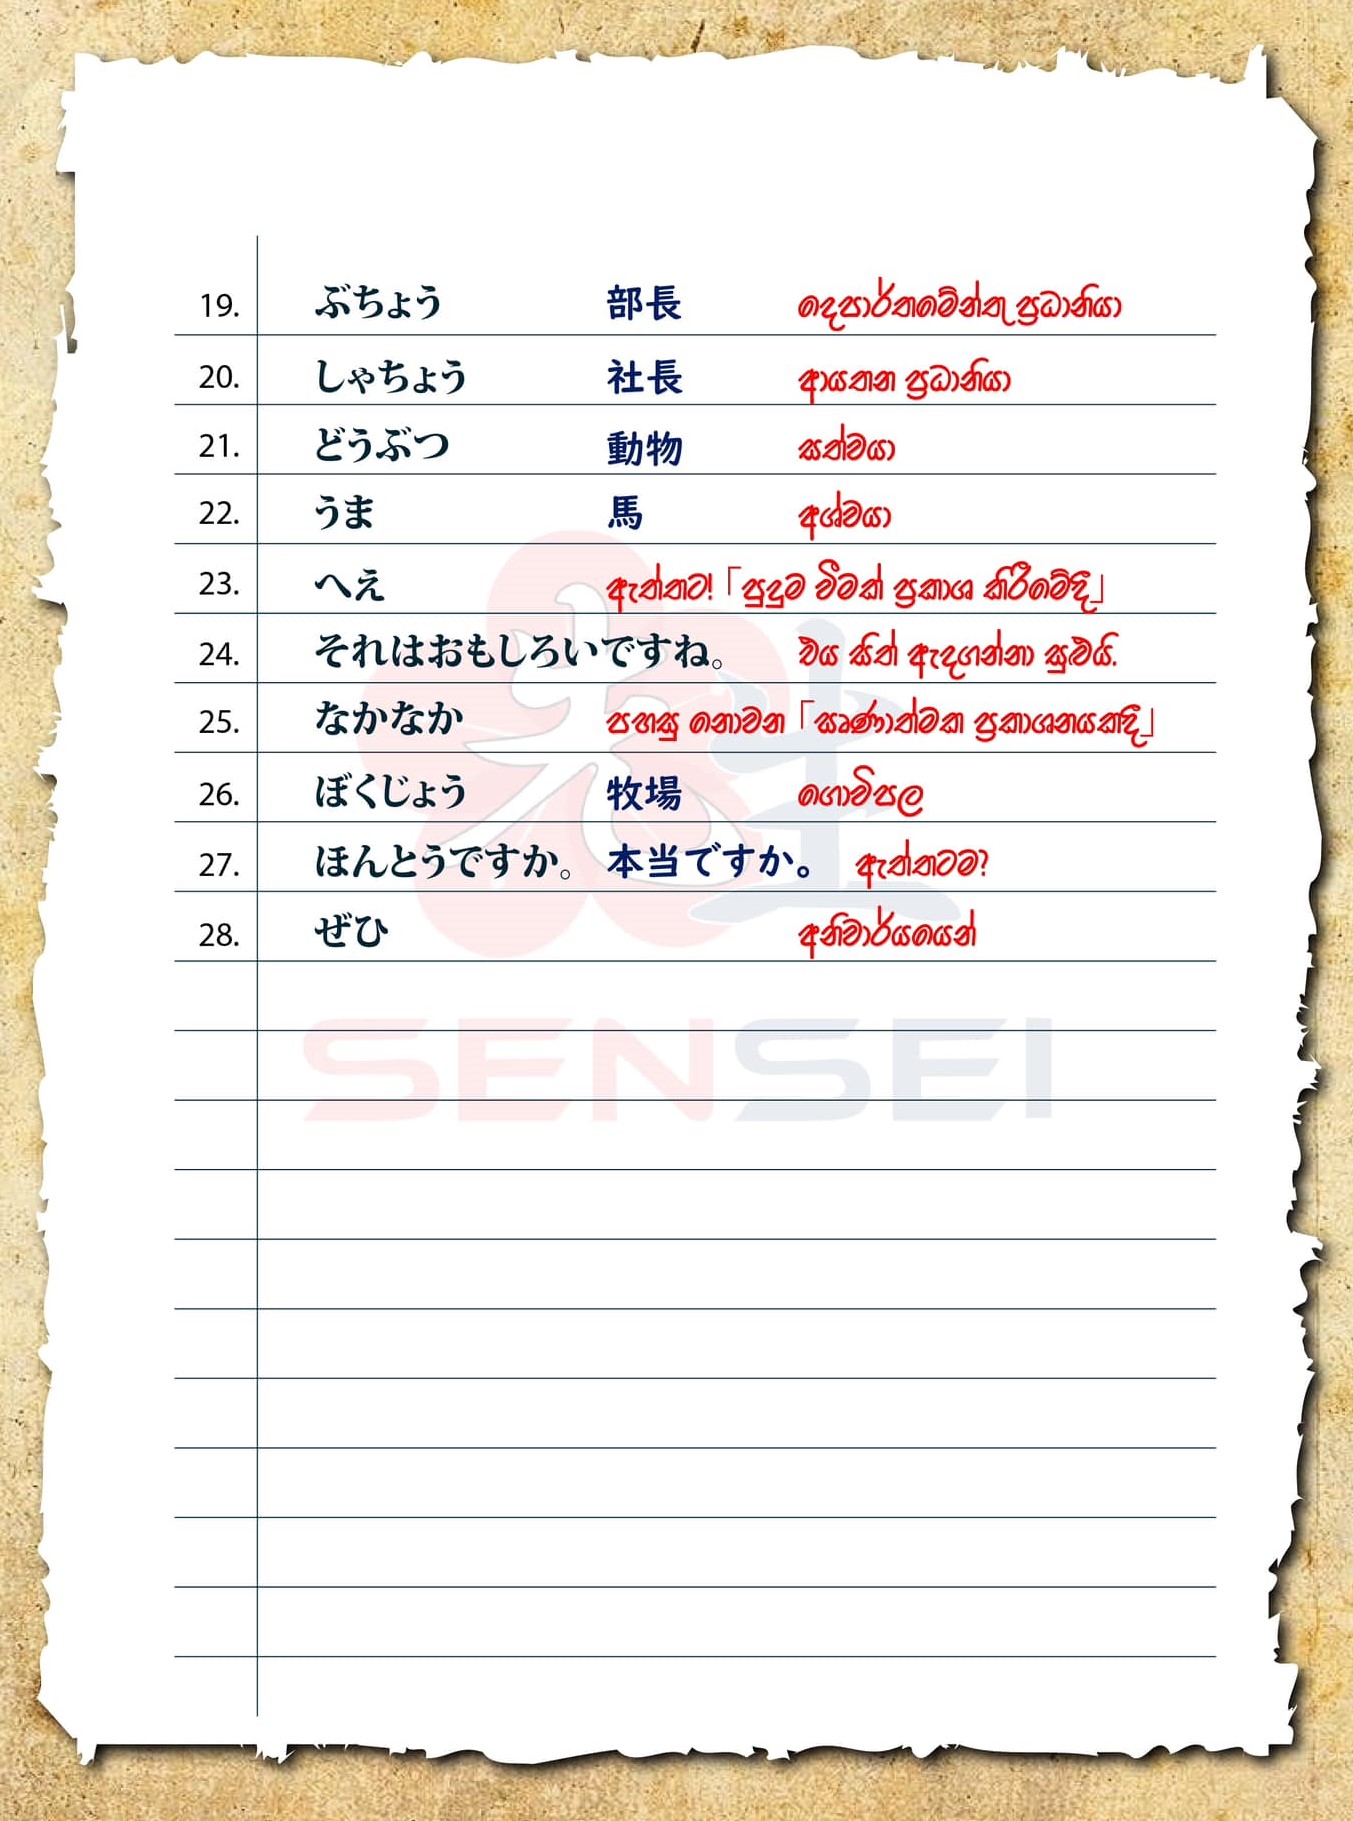 19. ぶちょう 部長 දෙපාර්තමේන්තු ප්‍රධානියා
20. しゃちょう 社長 ආයතන ප්‍රධානියා
21. どうぶつ 動物 සත්වයා
22. うま 馬 අශ්වයා
23. へえ ඇත්තට! 「පුදුම වීමක් ප්‍රකාශ කිරීමේදී」
24. それはおもしろいですね。 එය සිත් ඇදගන්නා සුළුයි.
25. なかなか පහසු නොවන 「ඍණාත්මක ප්‍රකාශනයකදී」
26. ぼくじょう 牧場 ගොවිපල
27. ほんとうですか。 本当ですか。 ඇත්තටම?
28. ぜひ අනිවාර්යයෙන්
先生
SENSEI